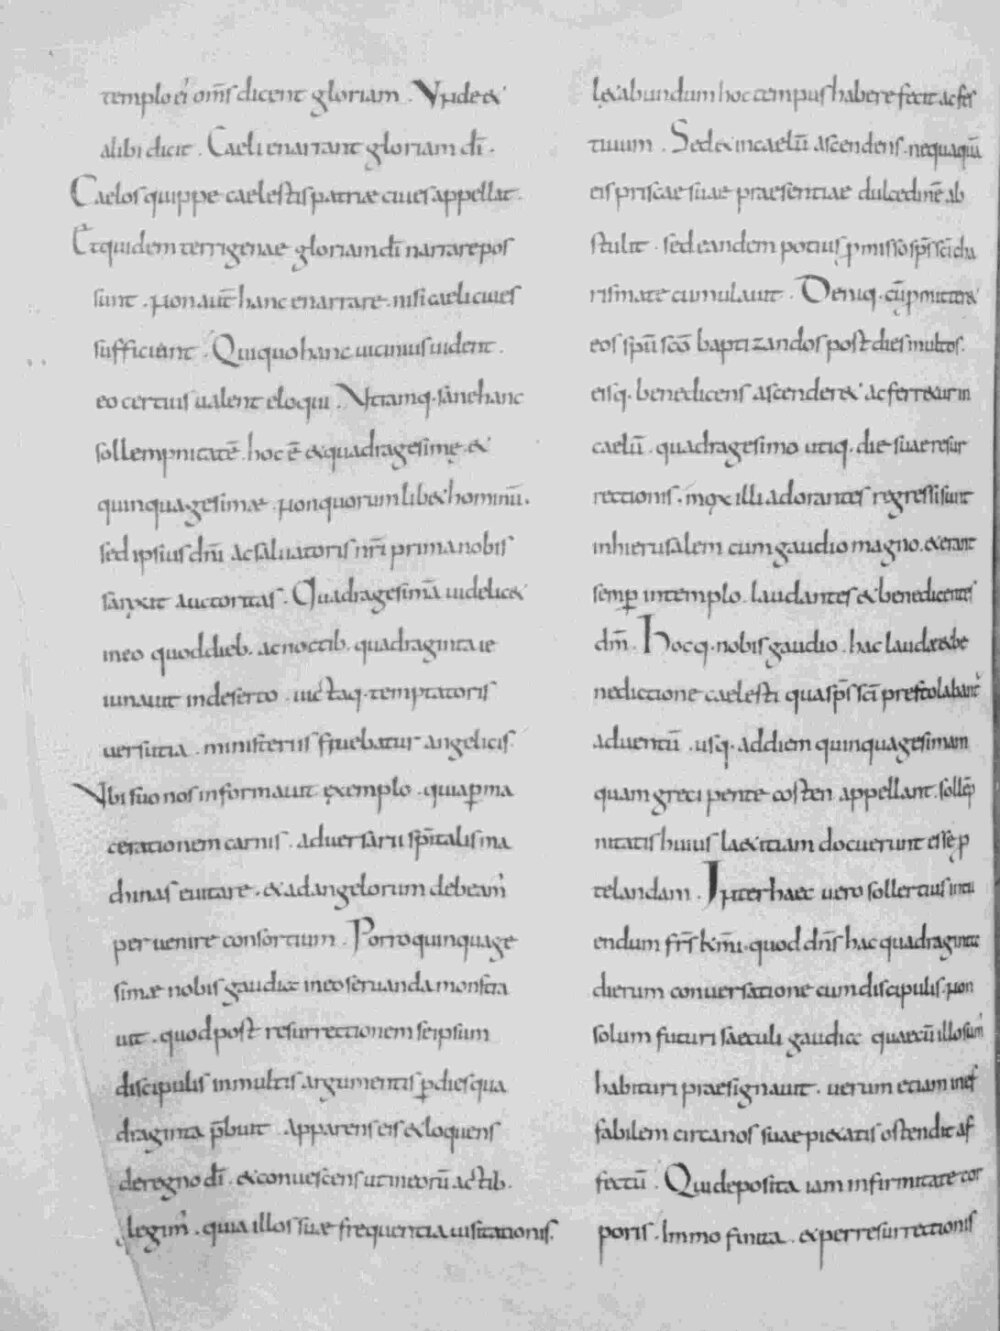 templo ei om̄s dicent gloriam . Vnde &
alibi dicit . Caeli enarrant gloriam dī .
Caelos quippe caelestis patriae ciues appellat .
Et quidem terrigenae gloriam dī narrare pos
sunt . non aut̄ hanc enarrare . nisi caeli ciues
sufficiunt . Qui quo hanc uicinius uident .
eo certius ualent eloqui . Vtramq· sane hanc
sollempnitatē . hoc ē & quadragesimę . &
quinquagesimae . non quorumlib& hominū .
sed ipsius dn̄i ac saluatoris nr̄i prima nobis
sanxit auctoritas . Quadragesimā uidelic&
in eo quod dieb· ac noctib· quadraginta ie
iunauit in deserto . uictaq· temptatoris
uersutia . ministeriis fruebatur angelicis .
Vbi suo nos informauit exemplo . quia p̱ ma
cerationem carnis . aduersarii sp̄italis ma
chinas euitare . & ad angelorum debeam'
peruenire consortium . Porro quinquage
simae nobis gaudia in eo seruanda monstra
uit . quod post resurrectionem se ipsum
discipulis in multis argumentis p̱ dies qua
draginta p̄buit . Apparens eis & loquens
de regno dī . & conuescens ut in eorū actib·
legim' . quia illos suae frequentia uisitationis .
l&abundum hoc tempus habere fecit ac fes
tiuum . Sed & in caelū ascendens . nequaquā
eis priscae suae praesentiae dulcedinē ab
stulit . sed eandem potius p̱misso sp̄s sc̄i cha
rismate cumulauit . Deniq· cū p̱mitter&
eos sp̄u sc̄o baptizandos post dies multos .
eisq· benedicens ascender& ac ferr&ur in
caelū . quadragesimo utiq· die suae resur
rectionis . mox illi adorantes regressi sunt
in hierusalem cum gaudio magno . & erant
semp̱ in templo . laudantes & benedicentes
dm̄ . Hocq· nobis gaudio . hac laude & be
nedictione caelesti qua sp̄s sc̄i prestolabant'
aduentū . usq· ad diem quinquagesimam
quam greci pente costen appellant . sollēp
nitatis huius laetitiam docuerunt esse p
telandam . Inter haec uero sollertius intu
endum fr̄s km̄i . quod dn̄s hac quadraginta
dierum conuersatione cum discipulis . non
solum futuri saeculi gaudia quae cū illo sum'
habituri praesignauit . uerum etiam inef
fabilem circa nos suae pietatis ostendit af
fectū . Qui deposita iam infirmitate cor
poris . Immo finita . & per resurrectionis